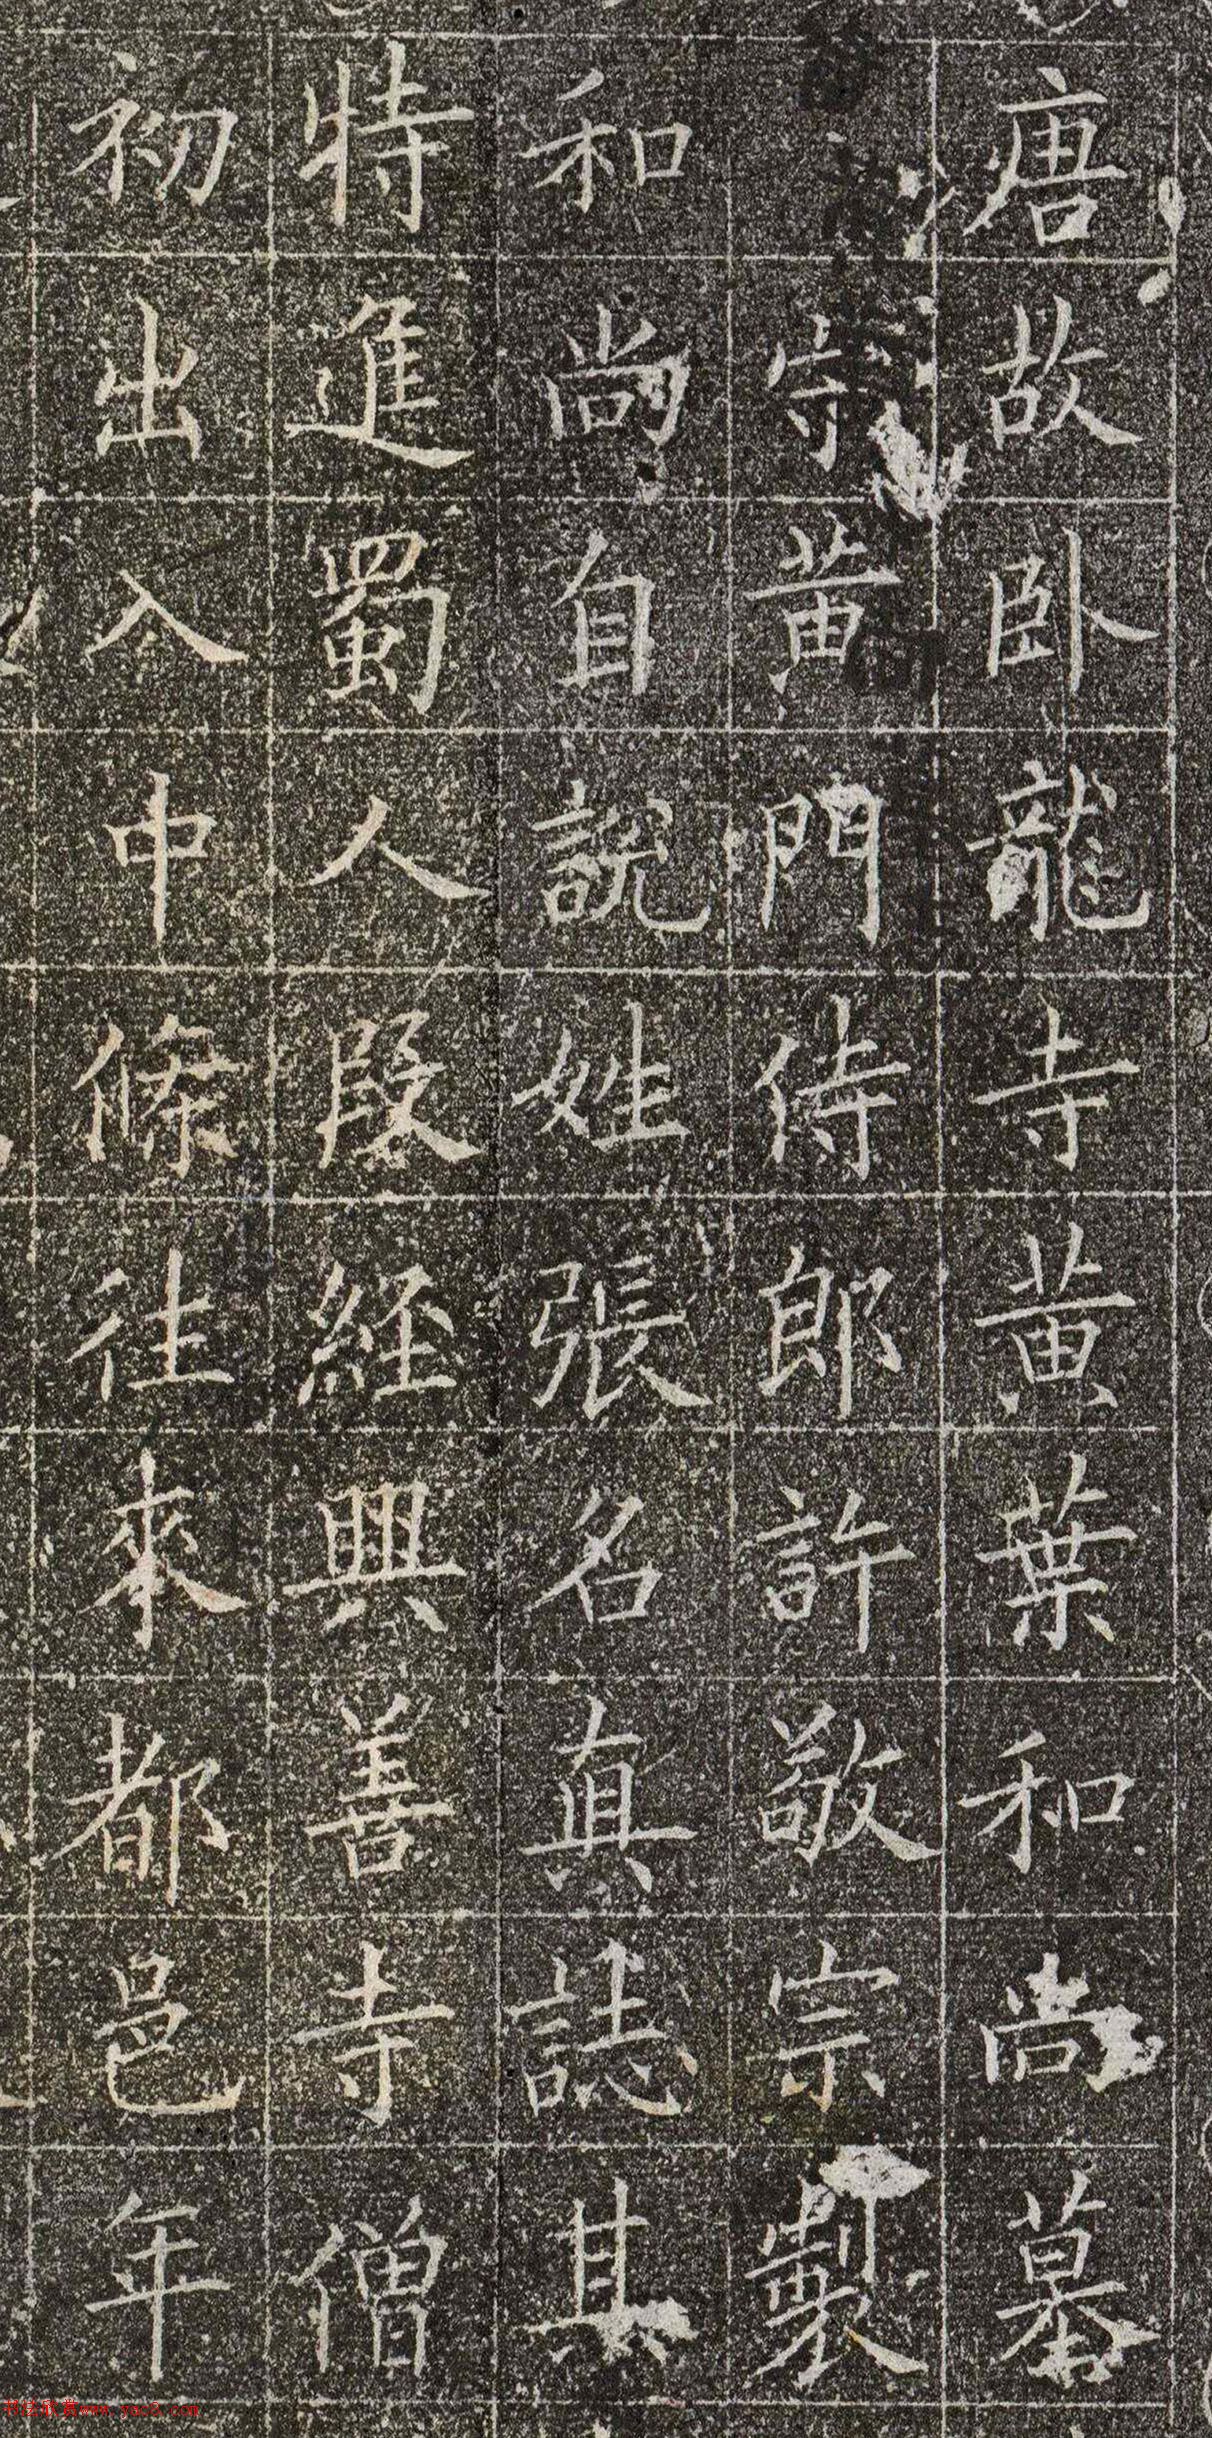 唐故卧龍寺黄葉和尚墓
守黄門侍郎許敬宗製
和尚自說姓張名真誌其
特進蜀人段經興善寺僧
初出入中條往來都邑年
书法欣赏www.yac8.com